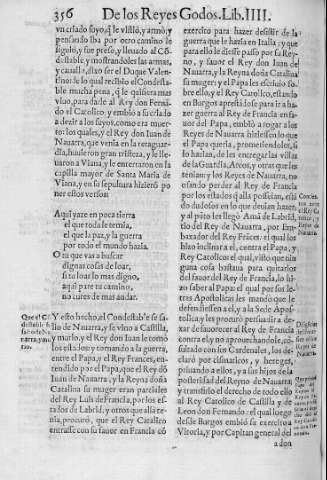 356 De los Reyes Godos. Lib. IIII.
vn criado suyo, q̃ le vistió, y armó, y
pensando yba por otro camino le
siguió, y fue preso, y lleuado al Cõ
destable, y mostrandoles las armas,
y cauallo, ser el Duque Valen
tino: de lo qual recibio el Condesta-
ble mucha pena, q̃ le quisiera mas
viuo, para darle al Rey don Fernã
do el Catolico: y embio a su criado
a dezir a los suyos, como era muer-
to: los quales, y el Rey don Iuan de
Nauarra, que venia en la retaguar-
dia, huuieron gran tristeza, y le lle-
uaron a Viana, y le enterraron en la
capilla mayor de Santa Maria de
Viana, y en su sepultura hizierõ po
ner estos versos:
Aqui yaze en poca tierra
el que toda le temia,
el que la paz, y la guerra
por todo el mundo hazia.
O tu que vas a buscar
dignas cosas de loar,
si tu loas lo mas digno,
aqui pare tu camino,
no cures de mas andar.
Y esto hecho, el Condestable se sa-
lio de Nauarra, y se vino a Castilla,
y murio, y el Rey don Iuan le tomó
los estados: y tornando a la guerra,
entre el Papa, y el Rey Frances, en-
tendido por el Papa, que el Rey dõ
Iuan de Nauarra, y la Reyna doña
Catalina su muger eran parciales
del Rey Luis de Francia, por los es-
tados de Labrid, y otros que allà te-
nia, procuró, que el Rey Catolico
entrasse con su fauor en Francia cõ
exercito para hazer desistir de la
guerra que le hazia en Italia, y que
para ello le diesse passo por su Rey-
no, y fauor el Rey don Iuan de
Nauarra, y la Reyna doña Catalina
su muger: y el Papa les escriuio so-
bre ello, y el Rey Catolico, estando
en Burgos aprestãdose para ir a ha-
zer guerra al Rey de Francia en fa-
uor del Papa, embió a rogar a los
Reyes de Nauarra hiziessen lo que
el Papa queria, prometiendoles, si
lo hazian, de les entregar las villas
de la Guardia, Arcos, y otras que les
tenian: y los Reyes de Nauarra, no
osando perder al Rey de Francia
por los estados q̃ alla posseian, está
do dudosos en lo que deuian hazer,
y al pũto les llegó Amã de Labrid,
tio del Rey de Nauarra, por Em-
baxador del Rey Frãces: el qual los
hizo inclinar a el, contra el Papa, y
Rey Catolico: el qual, visto que nin
guna cosa bastaua para quitarlos
del fauor del Rey de Francia, lo hi-
zo saber al Papa: el qual por sus le-
tras Apostolicas les mandó que le
defendiessen a el, y a la Sede Apos-
tolica: y les procuró persuadir a de-
xar de fauorecer al Rey de Francia
contra el, y no aprouechandole, cõ-
sultado con los Cardenales, los de-
claró por cismaticos, y hereges,
priuando a ellos, y a sus hijos de la
posteridad del Reyno de Nauarra,
y transfirio el derecho de todo ello
al Rey Catolico de Castilla y de
Leon don Fernando: el qual luego
desde Burgos embió su exercito a
Vitoria, y por Capitan general del
a don